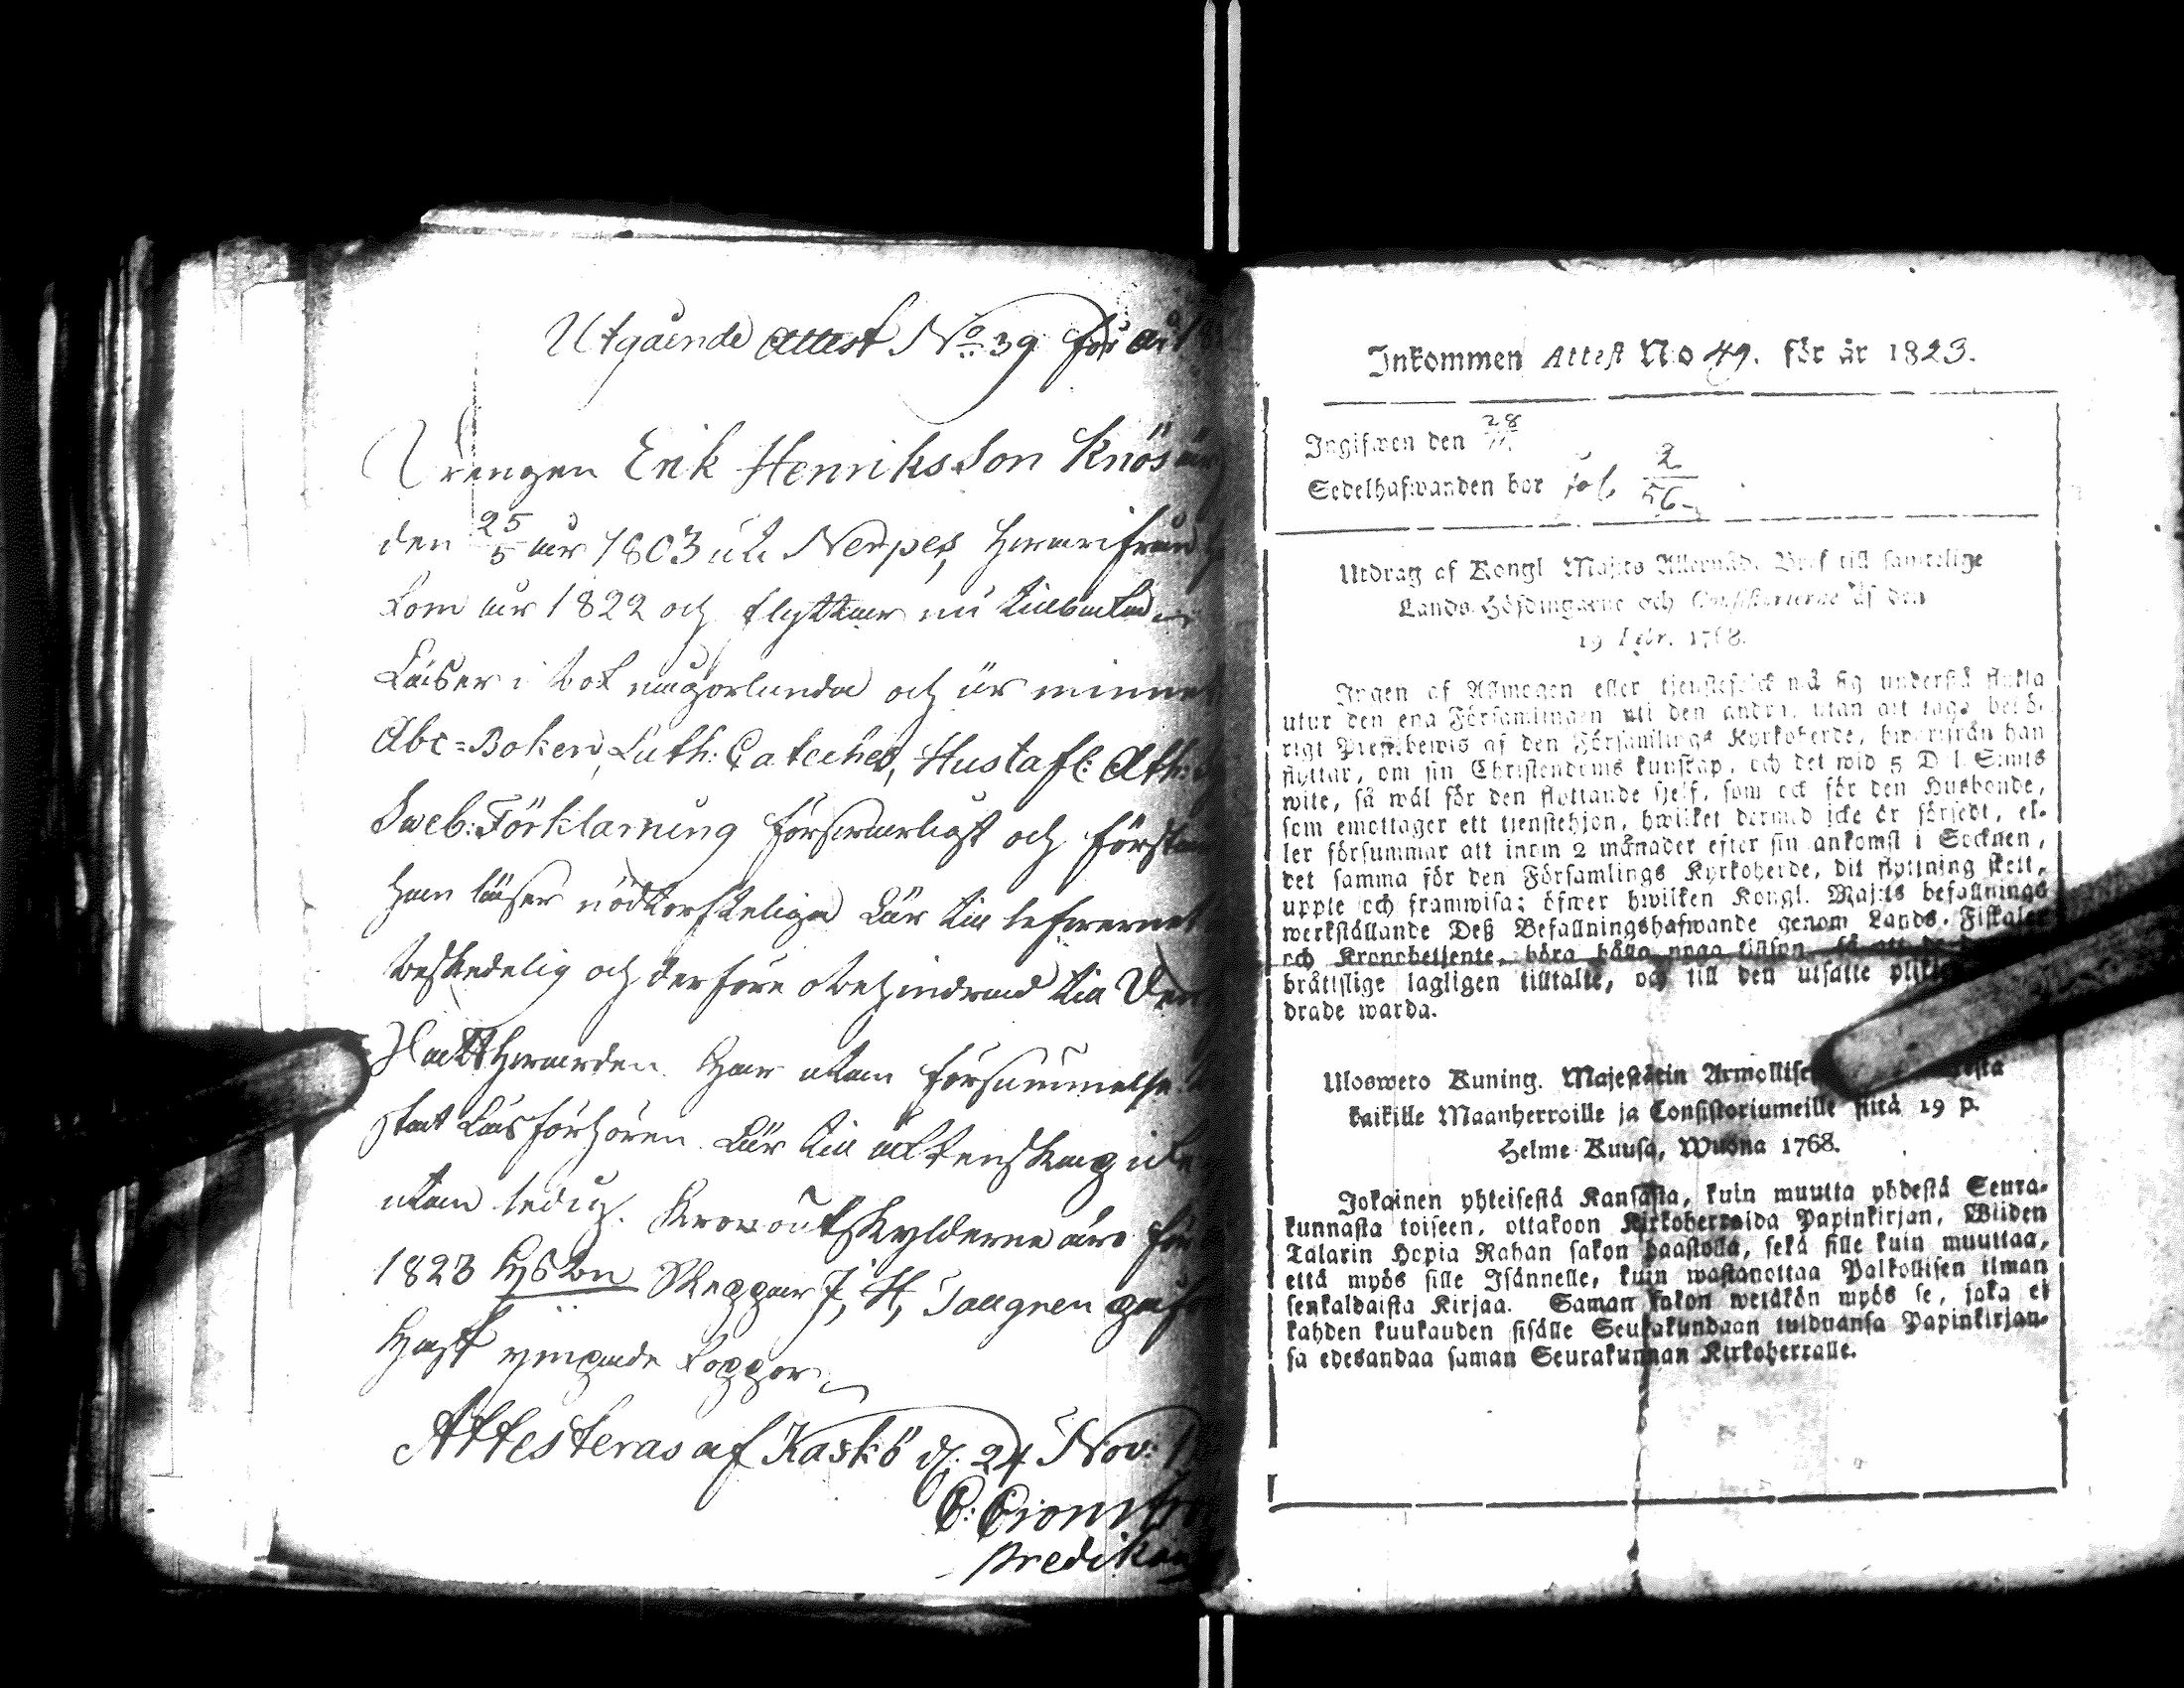 Utgående Attest No. 39 för år 18
Drengen Erik Henriksson Knös är
den 25/5 år 1803 uti Nerpes, hvarifrån
kom år 1822 och flyttar nu tillbaka
Läser i bok någorlunda och ur minnet
Abc=Boken, Luth: Cateches, Hustafl: Ath:
Sveb: Förklarning försvarligt och förstår
han läser nödtorfteligen Lär till lefvernet
beskedelig och derföre obehindrad till
Nattvarden. Har utan försummelse
Läsförhören. Lär till äktenskap icke
utan ledig. Kronoutskylderne äro för
1823 Skeppar J. H. Tallgren
haft ympade koppor
Attesteras af Kaskö d. 24 Nov: 1
C:
Predikan
Inkommen Attest No 49. för år 1823.
Ingifwen den 28/11.
Sedelhafwanden bor fol. 2/56
Utdrag af Kongl Maj:ts Allernåd. Bref till samtelige
Lands-Höfdingarne och Consistorierne af den
19 Febr. 1768.
Ingen af Allmogen eller tjenstefolck må sig understå flytta
utur den ena Församlingen uti den andra, utan att taga behö-
rigt Prestbewis af den Församlings Kyrkoherde, hwarifrån han
flyttar, om sin Christendoms kunskap, och det wid 5 D l. S:mts
wite, så wäl för den flyttande sjelf, som ock för den Husbonde,
som emottager ett tjenstehjon, hwilket dermed icke är försedt, el-
ler försummar att inom 2 månader efter sin ankomst i Socknen,
det samma för den Församlings Kyrkoherde, dit flyttning skett,
uppte och framwisa; öfwer hwilken Kongl. Maj:ts befallnings
werkställande Deß Befallningshafwande genom Lands-Fiskaler
och Kronobetjente, böra hålla noga tillsyn, så att de
bråttslige lagligen tilltalte, och till den utsatte
drade warda.
Uloswето Kuning. Majestätin
kaikille Maanherroille ja Consistoriumeille siitä 19 p.
Helme-Kuusa, Wuona 1768.
Jokainen yhteisestä Kansasta, kuin muutta yhdestä Seura-
kunnasta toiseen, ottakoon Kirkoherralda Papinkirjan, Wiiden
Talarin Hopia Rahan sakon haastolla, sekä sille kuin muuttaa,
että myös sille Isännelle, kuin wastanottaa Palkollisen ilman
senkaldaista Kirjaa. Saman sakon wetäkön myös se, joka ei
kahden kuukauden sisälle Seurakundaan tulduansa Papinkirjan-
sa edesandaa saman Seurakunnan Kirkoherralle.